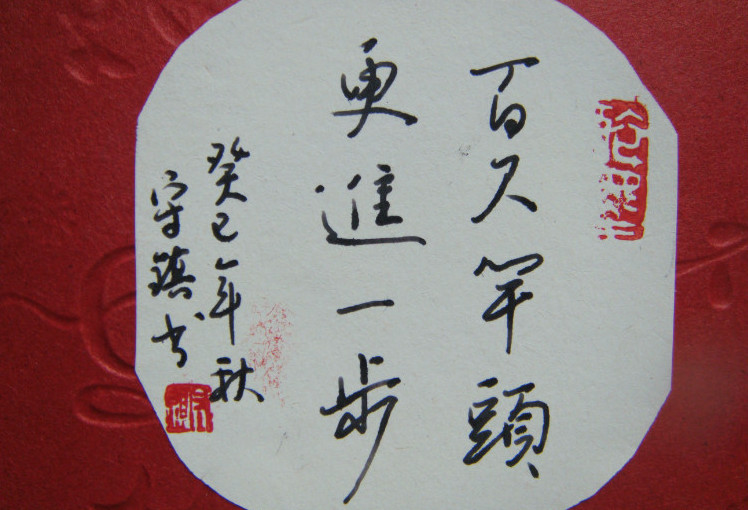 百尺竿頭
更進一步
癸巳年秋
守鎮书